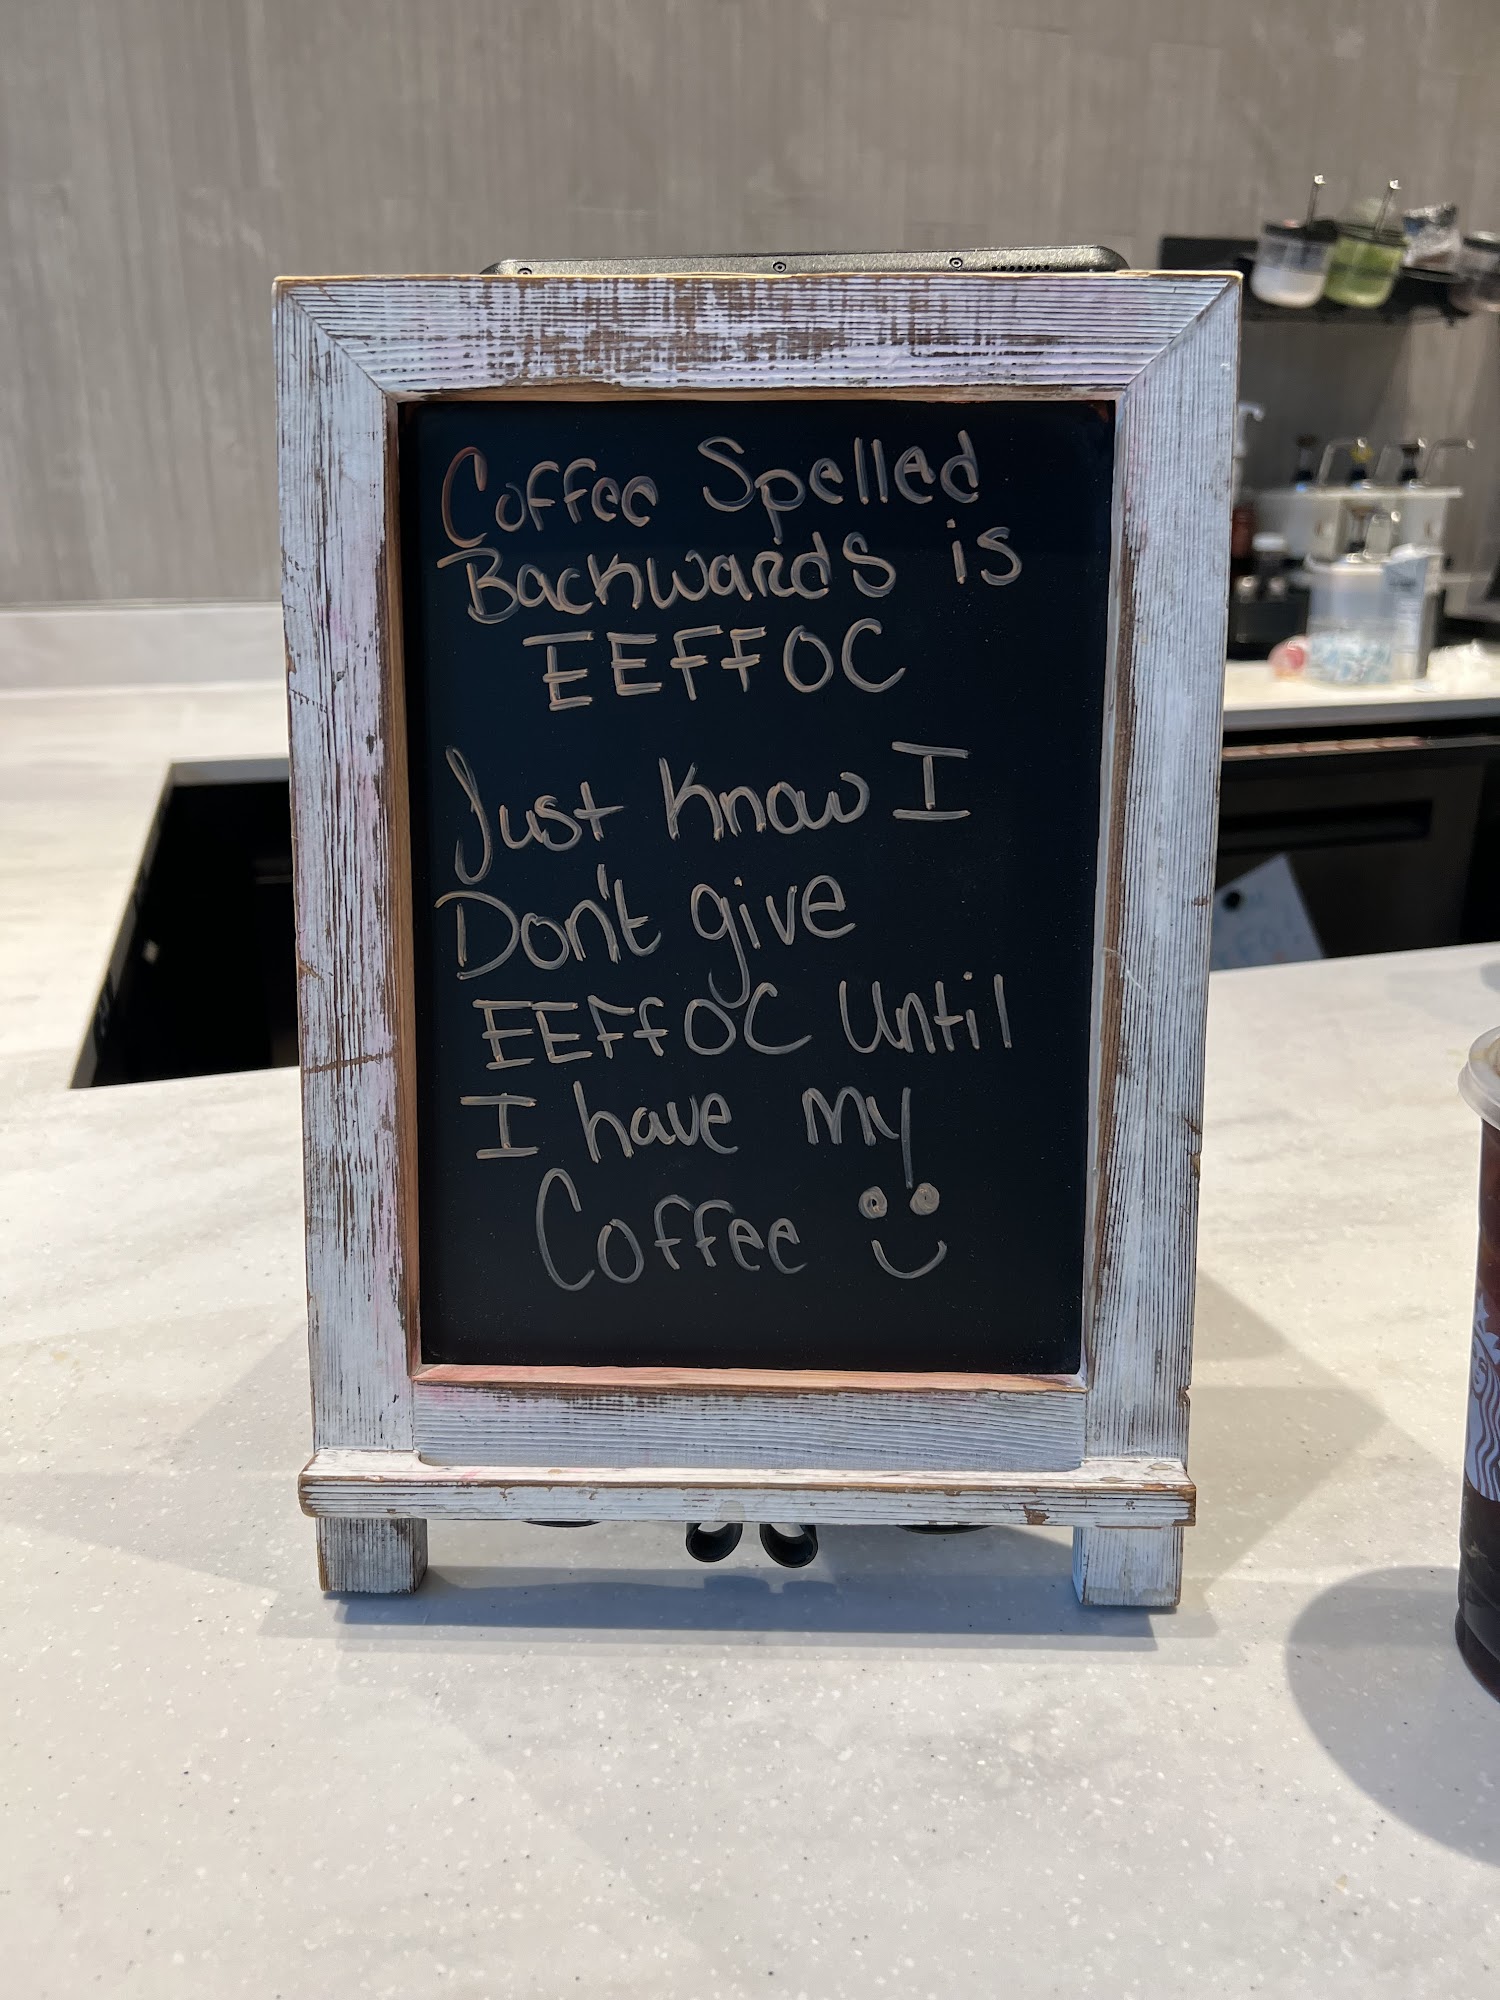 Coffee Spelled
Backwards is
EEFFOC
Just Know I
Don't give
EEFFOC Until
I have my
Coffee